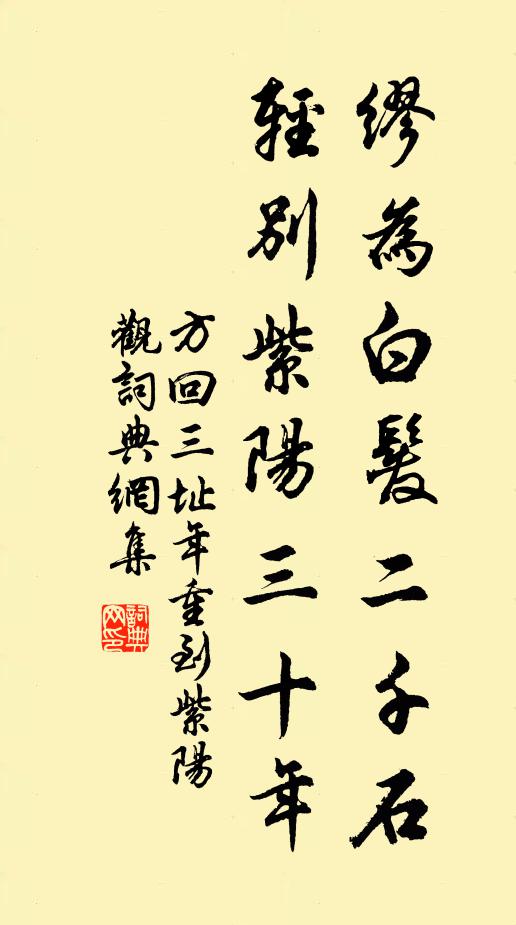 繆為白髮二千石
輕別紫陽三十年
方回三址年重到紫陽
觀詞典網集
詞典網印